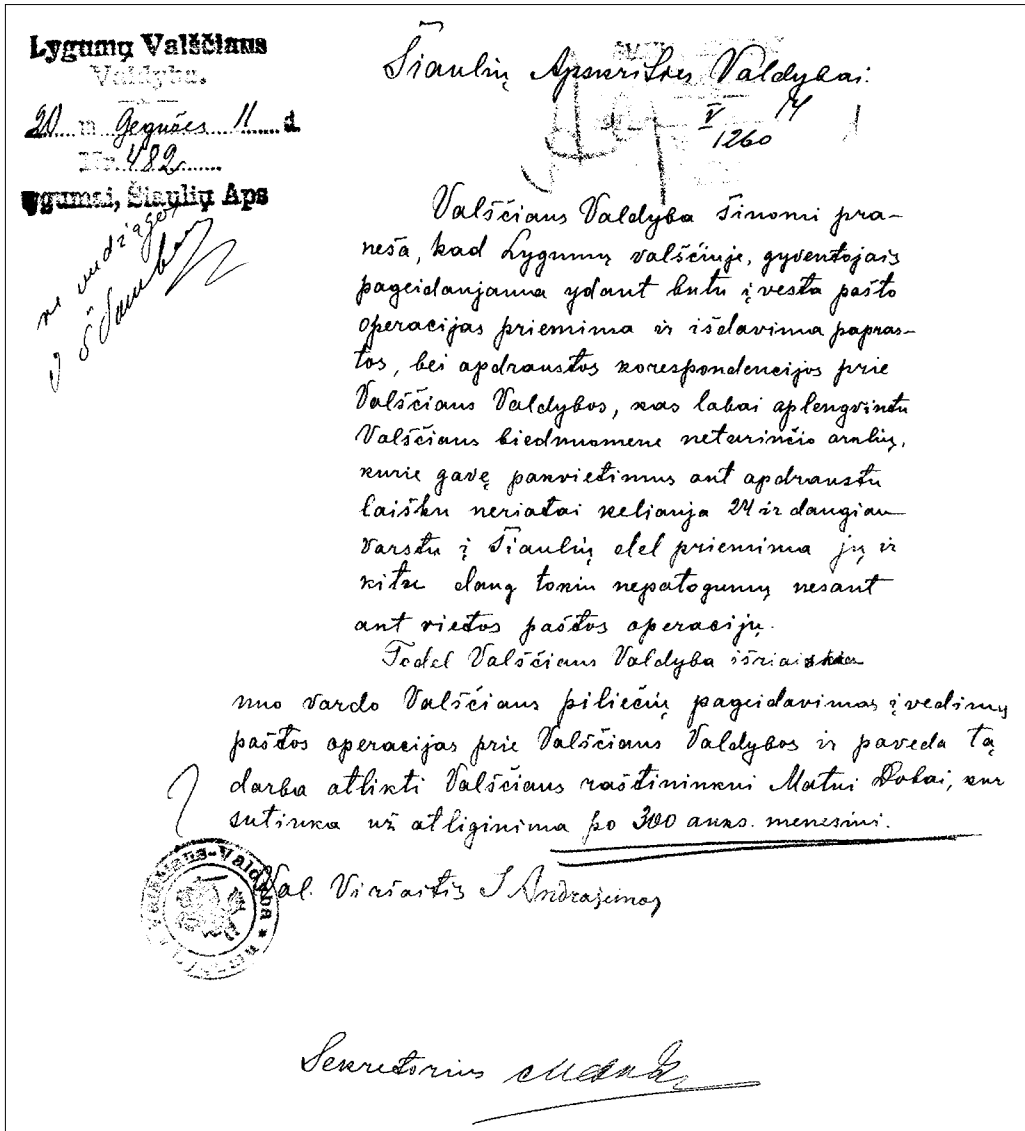 Lygumų Valščiaus
Valdyba.
20 m Gegužės 11 d.
Nr. 482
ygumai, Šiaulių Aps
Šiaulių Apskrities Valdybai.
V 14
1260
Valščiaus Valdyba šiuomi pra-
neša, kad Lygumų valščiuje, gyventojais
pageidaujama ydant butu įvesta pašto
operacijas priemima ir išdavima papras-
tos, bei apdraustos korespondencijos prie
Valščiaus Valdybos, kas labai aplengvintu
Valščiaus biednuomene neturinčio arklių,
kurie gavę pakvietimus ant apdraustu
laišku neriatai keliauja 24 ir daugiau
varstu į Šiaulių del priemima jų ir
kitu daug tokiu nepatogumų nesant
ant vietos paštos operacijų.
Todel Valščiaus Valdyba išriaiškia
nuo vardo Valščiaus piliečių pageidavimas įvedimų
paštos operacijas prie Valščiaus Valdybos ir paveda tą
darba atlikti Valščiaus raštininkui Matui Dobai, kur
sutinka už atliginima po 300 auks. menesiui.
Val. Viršaitis J Andrašiunas
Valdyba
Sekretorius